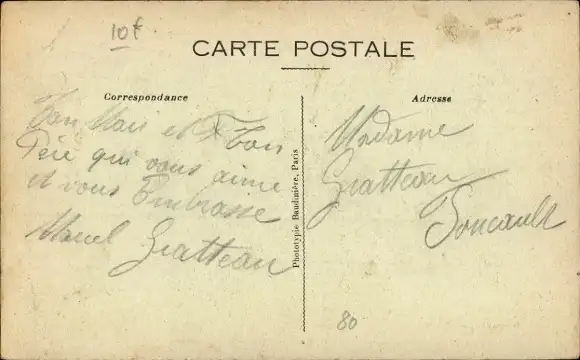 10f
CARTE POSTALE
Correspondance
Ton Mari et Ton
Père qui vous aime
et vous Embrasse
Marcel Gratteau
Phototypie Baudinière, Paris
Adresse
Madame
Gratteau
Foucault
80